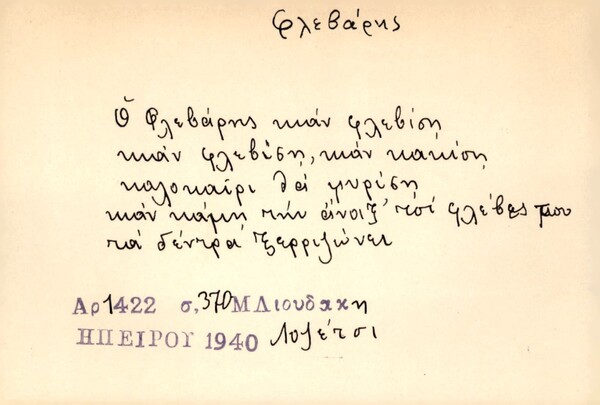 Φλεβάρης
Ὁ Φλεβάρης κιἄν φλεβίση
κιἄν φλεβίση, κιἄν κακίση
καλοκαίρι θά μυρίση
κιἄν κάμη τήν ἄνοιξ' τσί φλέβες του
τά δέντρα ξερριζώνει
Αρ 1422 σ. 370 Μ Λιουδακη
ΗΠΕΙΡΟΥ 1940 Λοζέτσι